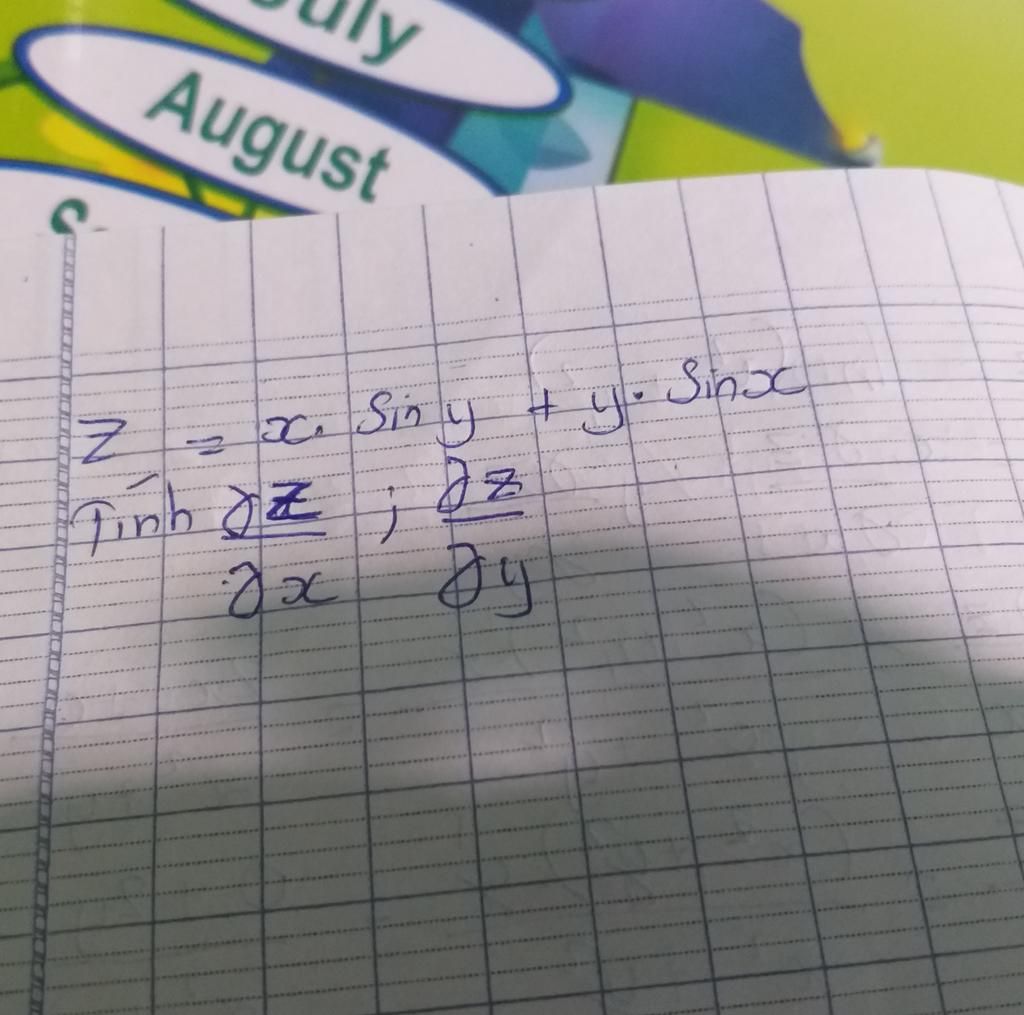 July
August
S
Z = x. Sin y + y. Sinx
Tính ∂z/∂x ; ∂z/∂y